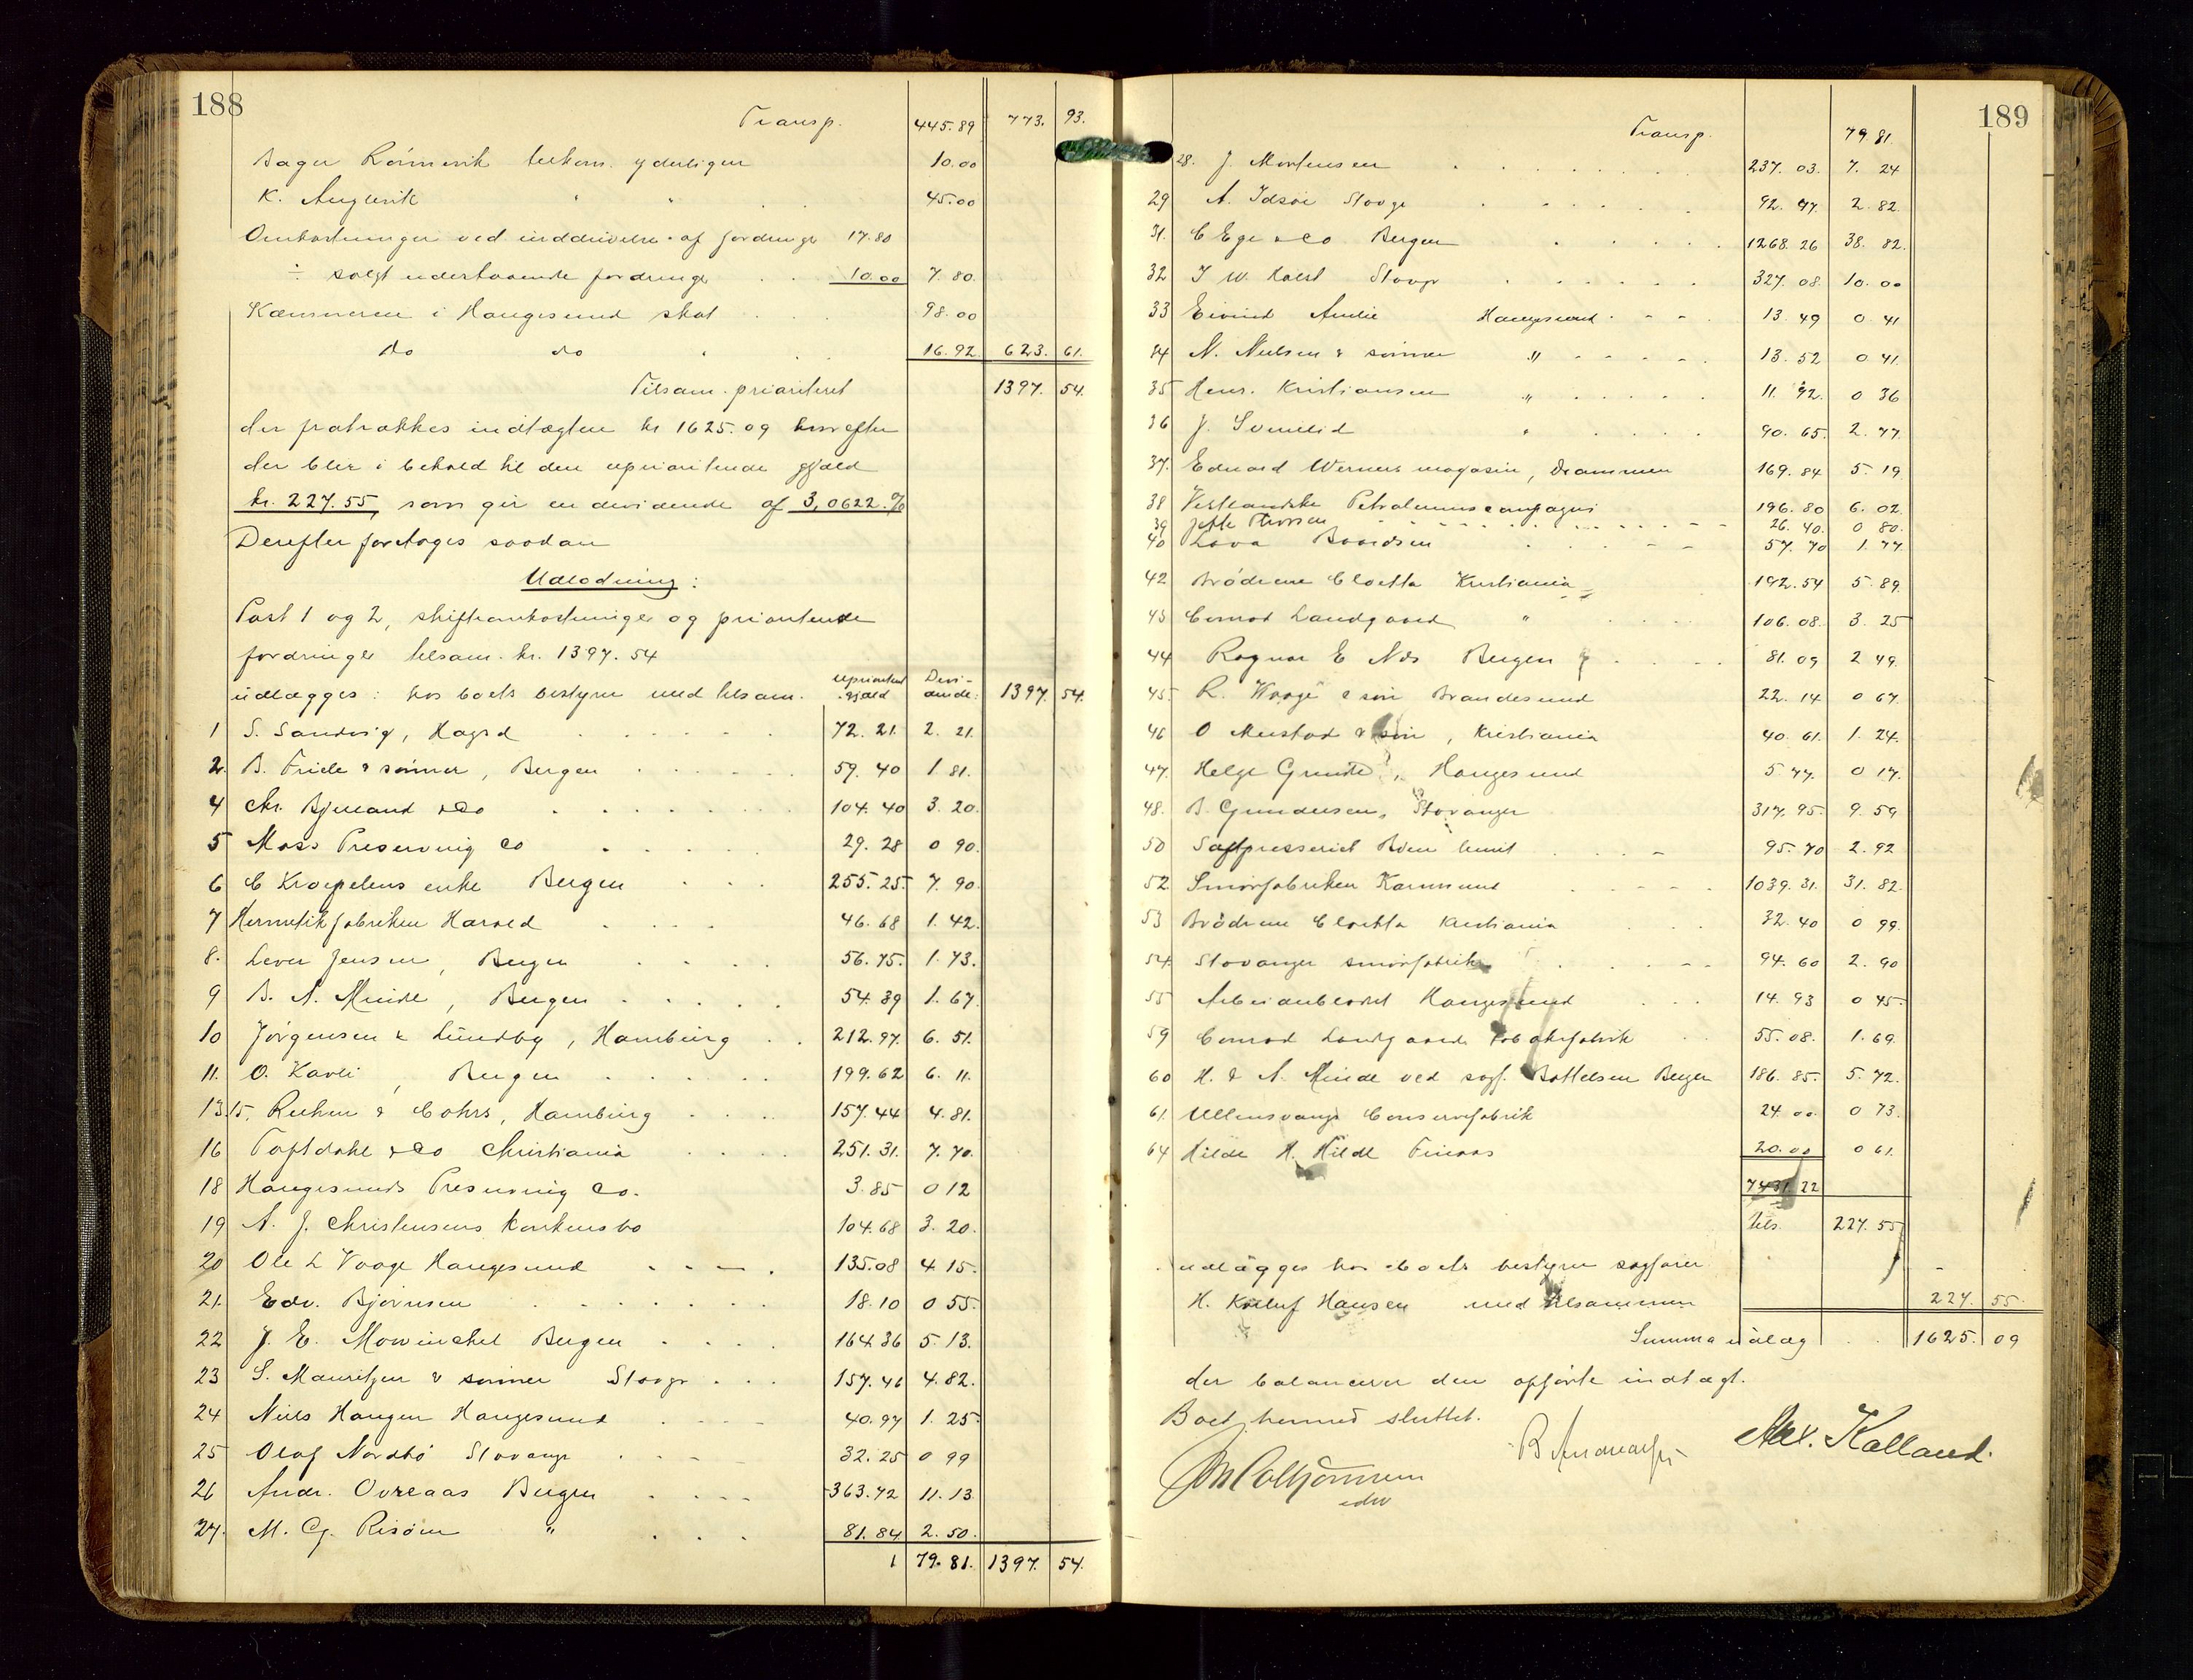 188
Transp. 445.89 773. 93.
Bager Rönnevik tilkom. yderligere 10.00
K. Auglerik " " 45.00
Omkostninger ved inddrivelse af fordringe 17.80
÷ solgt udestaaende fordringe 10.00 7.80.
Kæmneren i Haugesund skat 98.00
do do 16.92 623. 61.
Tilsam. prioriteret 1397. 54.
der fratrækkes indtægten kr 1625.09 hvorefter
der blir i behold til den uprioriterede gjæld
kr. 227.55, som gir en dividende af 3,0622 %
Derefter foretoges saadan
Udlodning:
Post 1 og 2, skifteomkostninger og prioriterede
fordringer tilsam. kr. 1397.54
udlægges: hos boets bestyrer med tilsam. uprioritert gjæld Divi-dende: 1397. 54.
1 S. Sandvig, Hagsd 72.21 2.21.
2. B. Friele & sönner, Bergen 59.40 1.81.
4 Chr. Bjelland & Co 104.40 3.20.
5 Moss Preserving Co 29.28 0 90.
6 C Kroepeliens enke Bergen 255.25. 7.90.
7 Hermetikfabriken Harald 46.68 1.42.
8. Lever Jensen, Bergen 56.75. 1.73.
9 B. A. Minde, Bergen 54.89 1.67.
10 Jörgensen & Lundby, Hamburg 212.97. 6.51.
11. O. Kavli, Bergen 199.62 6.11.
13.15. Ruhen & Cohrs, Hamburg 157.44 4.81.
16 Toftdahl & Co Christiania 251.31. 7.70.
18 Haugesunds Preserving Co. 3.85 0 12
19 A. J. Christensens konkursbo 104.68 3.20.
20 Ole L Vaage Haugesund 135.08 4 15.
21. Edv. Björnsen 18.10 0 55.
22 J. E. Mowinckel Bergen 164.36 5 13.
23 S. Mauritzen & sönner Stavgr 157.46 4.82.
24 Niels Haugen Haugesund 40.97 1.25.
25 Olaf Nordbö Stavanger 32.25 0 99
26 Andr. Ovreaas Bergen 363.72 11.13.
27. M. G. Risöen " 81.84 2.50.
1 79.81. 1397. 54.
189
Transp. 79.81.
28. J. Mortensen 237.03. 7.24
29 A. Idsöe Stavgr 92.97. 2.82.
31. C Ege & Co Bergen 1268.26 38.82.
32 I W. Holst Stavgr 327.08. 10.00
33 Eivind Amlie Haugesund 13.49 0 41
34 N. Nielsen & sönner " 13.52 0 41.
35 Henr. Kristiansen " 11.92. 0 36
36 J. Svinelid " 90.65. 2.77.
37. Eduard Werners magasin, Drammen 169.84 5.19
38 Vestlandske Petroleumscompagni 196.80 6.02.
39 26.40. 0 80.
40 Lava Baardsen 57.70 1.77.
42 Brödrene Cloetta Kristiania 192.54 5.89.
43 Conrad Landgaard " 106.08. 3.25
44 Ragnar E Næs Bergen 81.09 2 49.
45. R. Waage & sön Brandesund 22.14 0 67.
46 O Mustad & sön, Kristiania 40.61. 1.24.
47. Helge Grinde, Haugesund 5 77. 0 17.
48. B. Gundersen, Stavanger 317.95. 9.59
50 Saftpresseriet 95.70 2.92
52 Smörfabriken Karmsund 1039.31. 31.82.
53 Brödrene Cloetta Kristiania 32.40 0 99.
54. Stavanger smörfabrik 94.60 2.90
55 Haugesund 14.93 0 45.
59 Conrad Landgaards Tobaksfabrik 55.08. 1.69.
60 H. & A. Minde ved sagf. Bottelsen Bergen 186.85. 5.72.
61. Ullensvangs Conservefabrik 24.00. 0 73.
64 Hilde H. Hilde Finaas 20.00 0 61.
7431.22
tils. 227.55
udlægges hos boets bestyrer sagförer
H. Kolluf Hansen med tilsammen 227. 55.
Summa udlæg 1625. 09
der balancerer den opförte indtægt.
Boet hermed sluttet.
Alex. Kalland.